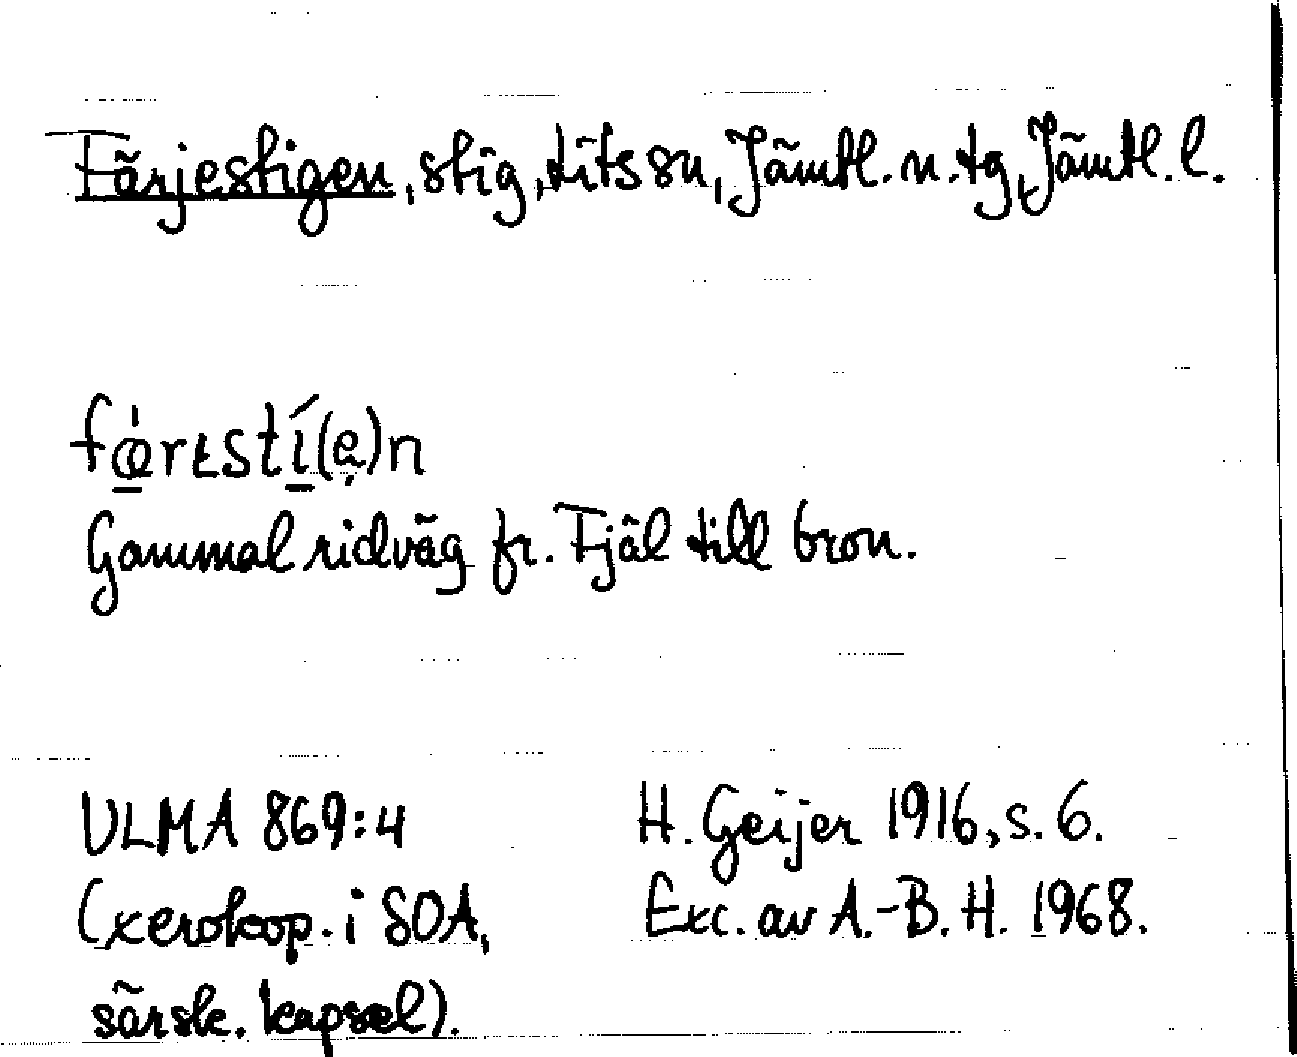 Färjestigen, stig, Lits sn, Jämtl. n. tg, Jämtl. l.
fœ̀rɩstí(ə)n
Gammal ridväg fr. Fjäl till bron.
ULMA 869:4 H. Geijer 1916, s. 6.
(xerokop. i SOA, Exc. av A.-B. H. 1968.
särsk. kapsel).